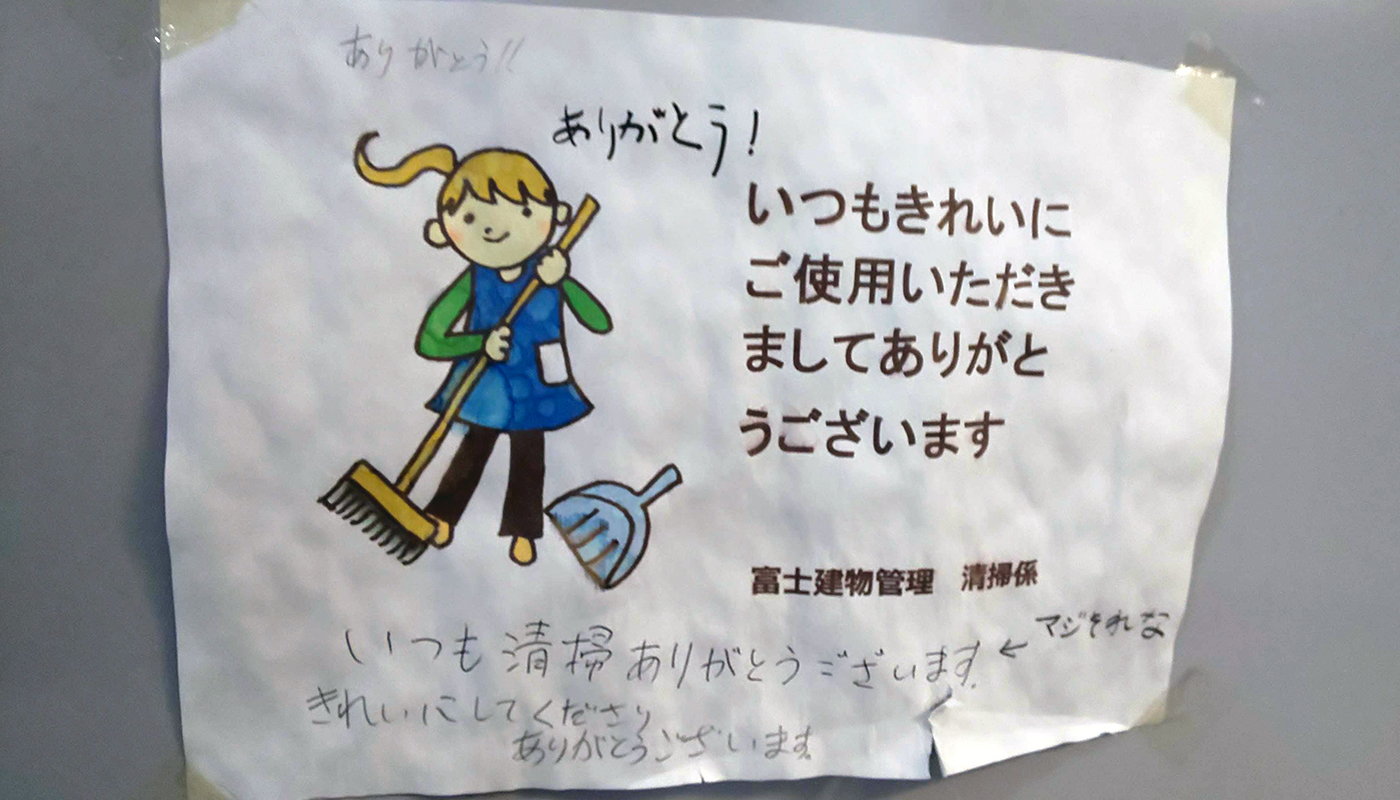 ありがとう!!
ありがとう!
いつもきれいに
ご使用いただき
ましてありがと
うございます
富士建物管理 清掃係
マジそれな
いつも清掃ありがとうございます。←
きれいにしてくださり
ありがとうございます